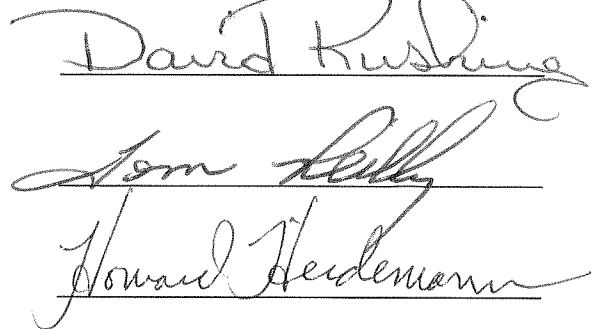 David Rushing
Tom Reilly
Howard Heidemann